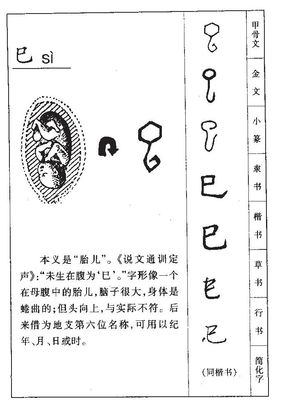 巳 sì
本义是“胎儿”。《说文通训定
声》:“未生在腹为‘巳’。”字形像一个
在母腹中的胎儿，脑子很大，身体是
蜷曲的；但头向上，与实际不符。后
来借为地支第六位名称，可用以纪
年、月、日或时。
甲骨文
金文
小篆
隶书
巳
楷书
巳
草书
巳
行书
巳
简化字
(同楷书)